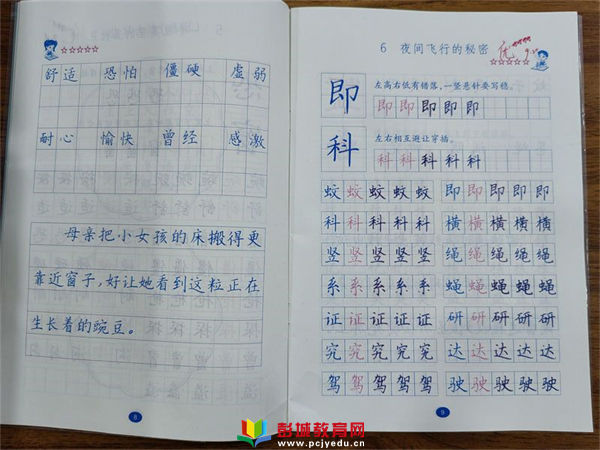 舒适 恐怕 僵硬 虚弱
耐心 愉快 曾经 感激
母亲把小女孩的床搬得更
靠近窗子，好让她看到这粒正在
生长着的豌豆。
8
6 夜间飞行的秘密 优
即 左高右低有错落，一竖悬针要写稳。
即即即即即
科 左右相互避让穿插。
科科科科科
蚊蚊蚊蚊蚊 即即即即即
科科科科科 横横横横横
竖竖竖竖竖 绳绳绳绳绳
系系系系系 蝇蝇蝇蝇蝇
证证证证证 研研研研研
究究究究究 达达达达达
驾驾驾驾驾 驶驶驶驶驶
9
彭城教育网
www.pcjyedu.cn